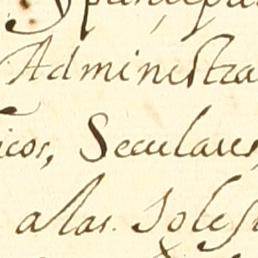 Administra
icos, Seculares,
alas. Igles